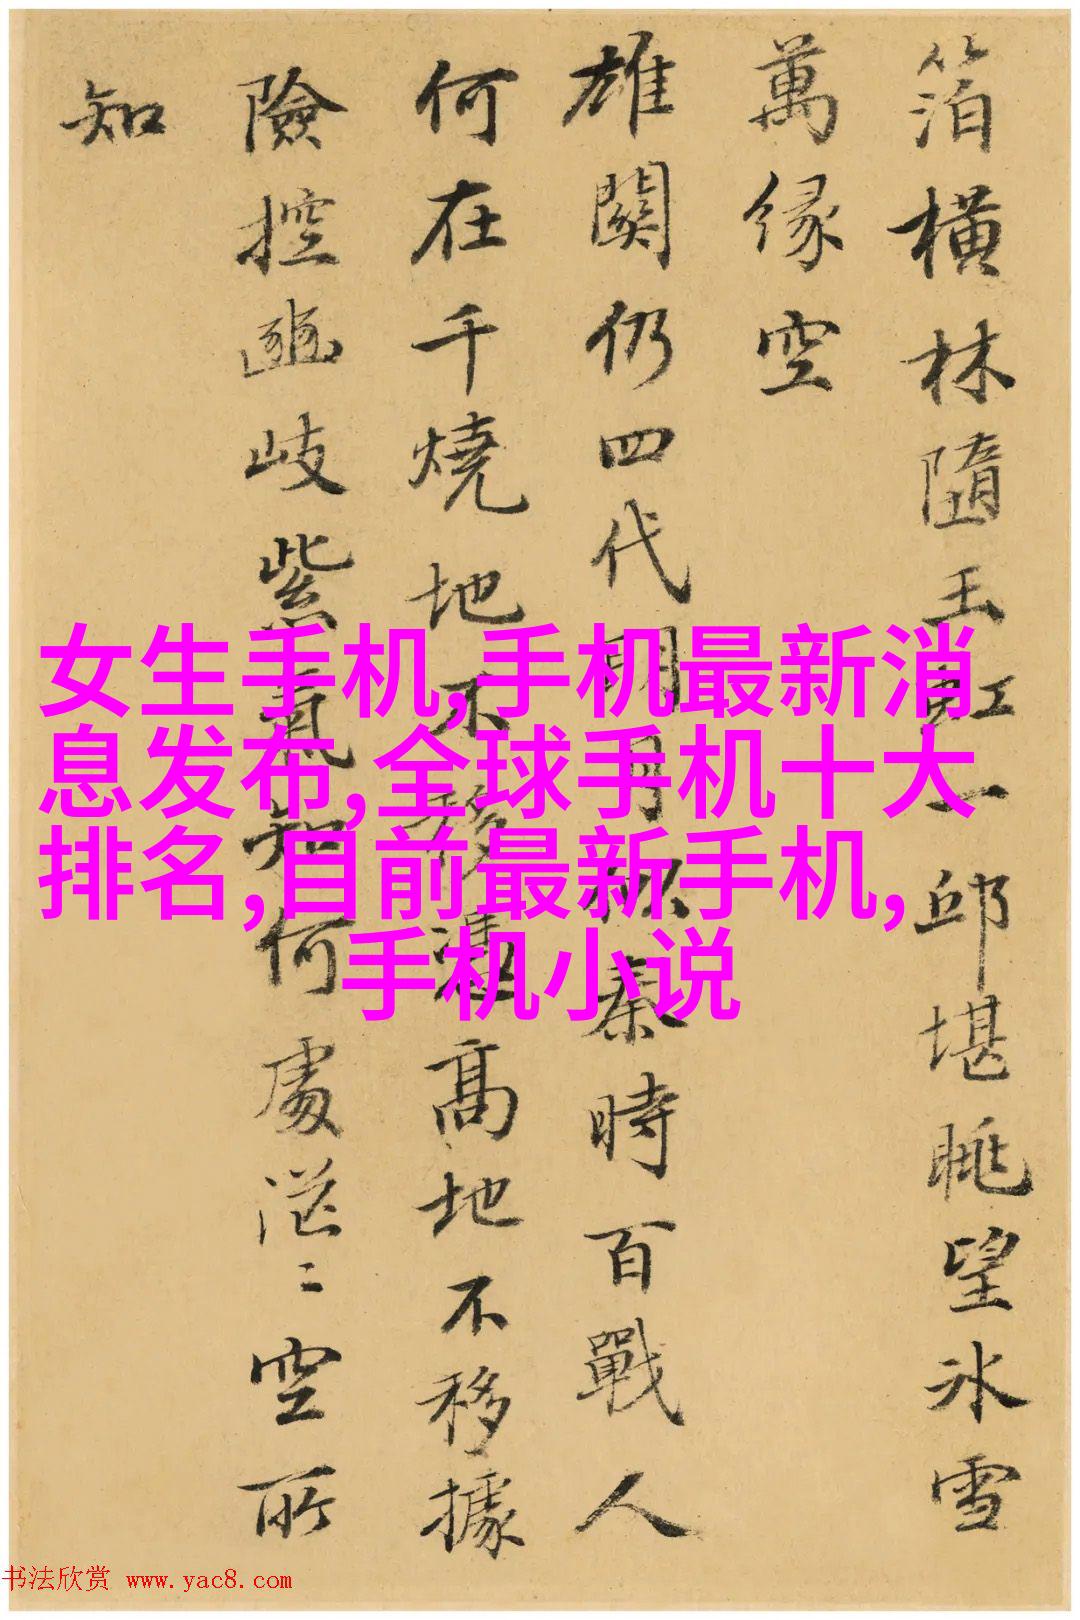 箔橫林隨玉虹一邱堪眺望氷雪
萬緣空
雄関仍四代明月秦時百戰人
何在千燒地不移憑髙地不移據
險控豳岐紫氣知何處茫〻空所
知
女生手机,手机最新消
息发布,全球手机十大
排名,目前最新手机,
手机小说
书法欣赏 www.yac8.com